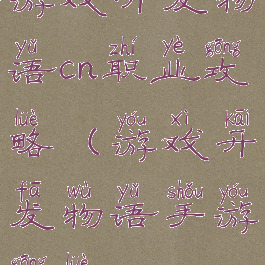 游戏开发物
yǔ zhí yè gōng
语cn职业攻
lüè yóu xì kāi
略（游戏开
fā wù yǔ shǒu yóu
发物语手游
gōng lüè